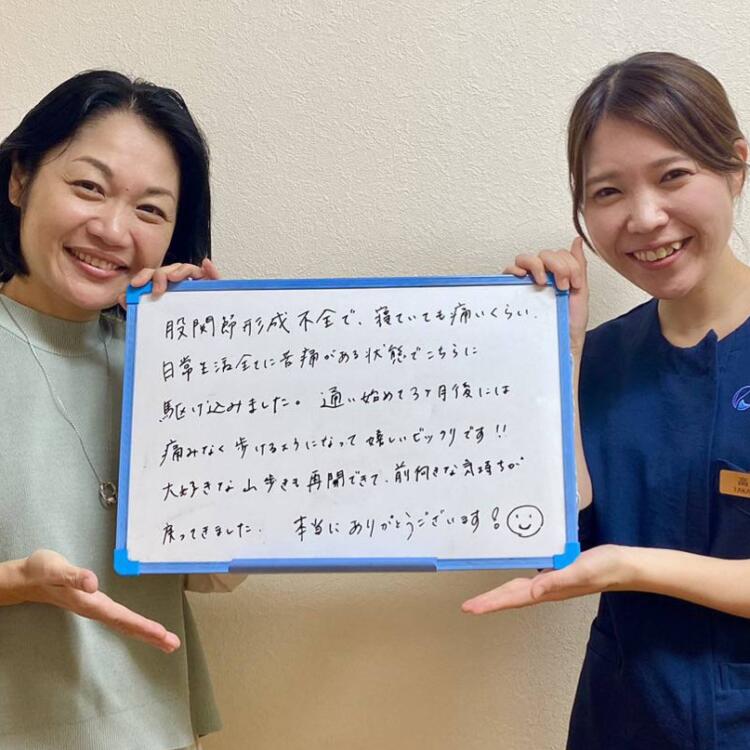 股関節形成不全で、寝ていても痛いくらい、
日常生活全てに苦痛がある状態でこちらに
駆け込みました。 通い始めて3ヶ月後には
痛みなく歩けるようになって嬉しいビックリです!!
大好きな山歩きも再開できて、前向きな気持ちが
戻ってきました. 本当にありがとうございます!
高
TAKA